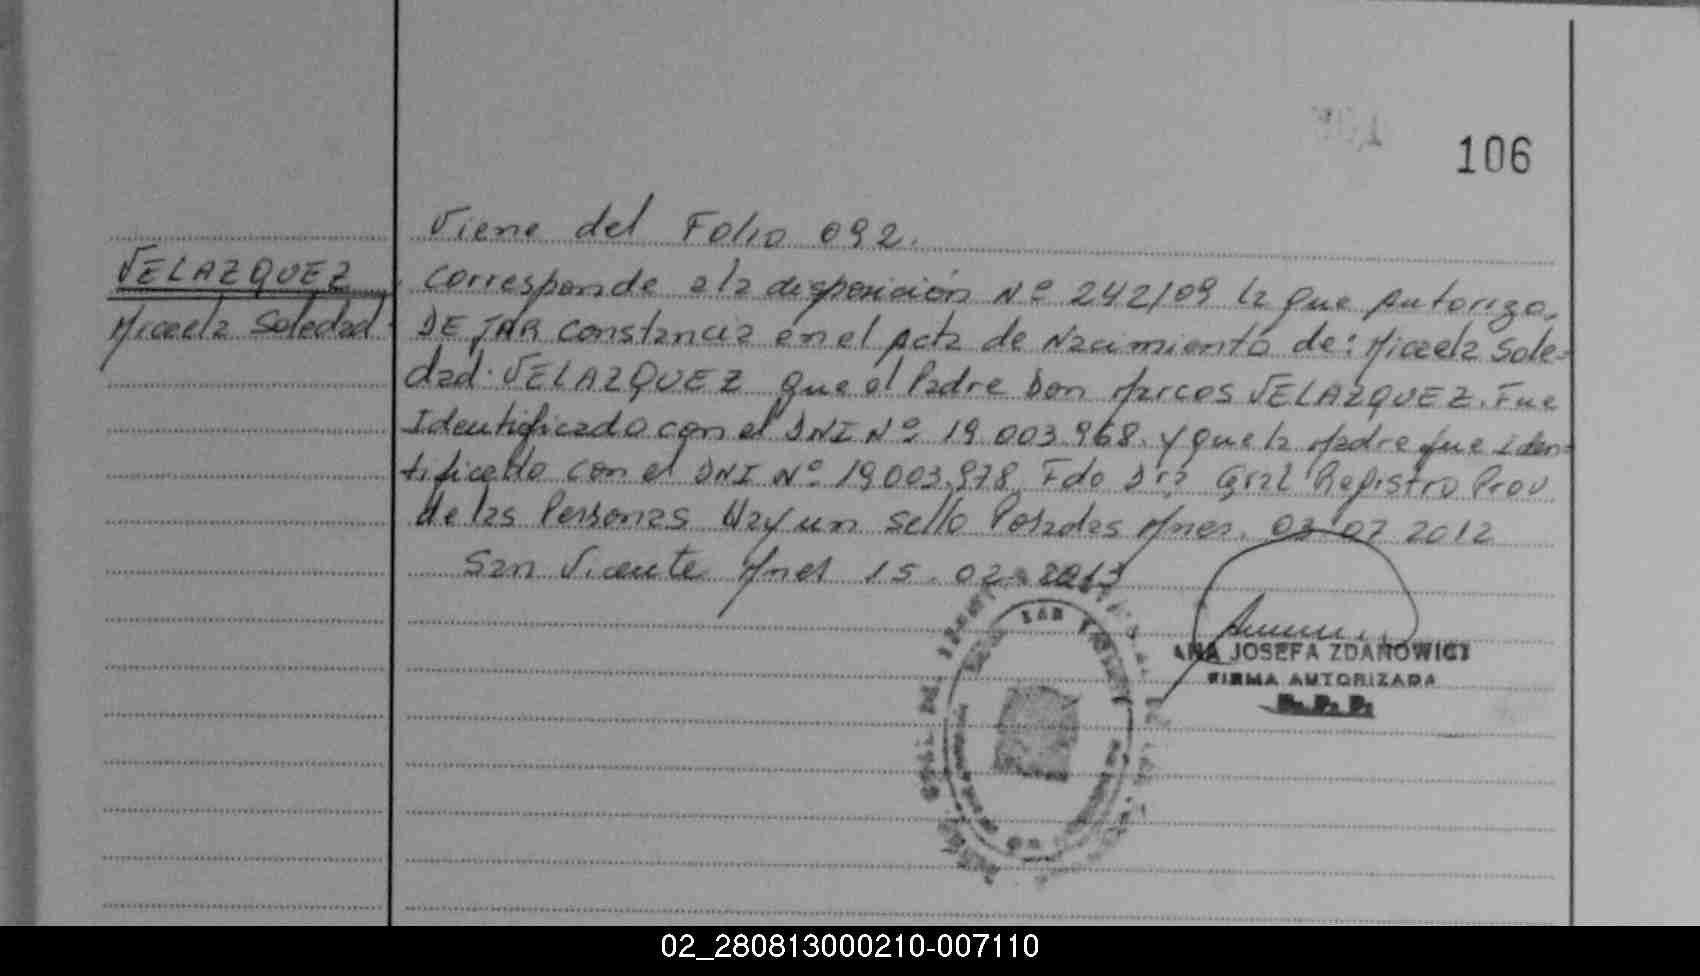 106
Viene del Folio 092.
VELAZQUEZ
Micaela Soledad
Corresponde a la disposición Nº 242/09 la que Autoriza
DEJAR constancia en el Acta de Nacimiento de: Micaela Sole-
dad VELAZQUEZ que el Padre Don Marcos VELAZQUEZ. Fue
Identificado con el DNI Nº 19.003.968. y que la Madre fue iden-
tificado con el DNI Nº 19.003.978 Fdo Dra Gral Registro Prov.
de las Personas Hay un sello Posadas Mnes. 03 07 2012
San Vicente Mnes 15.02.2013
SAN VICENTE
ANA JOSEFA ZDANOWICZ
FIRMA AUTORIZADA
02_280813000210-007110